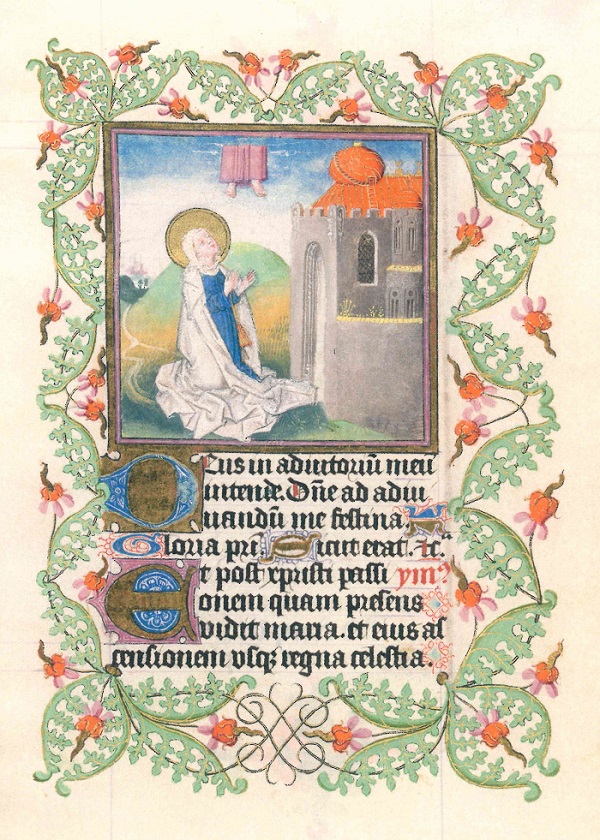 Deus in adiutoriũ meũ
intende. Dñe ad adiu
uandũ me festina.
Gloria pri. Sicut erat. ꝛc.
Et post xpristi passi ymꝰ
onem quam presens
vidit maria. et eius as
censionem vsqꝫ regna celestia.